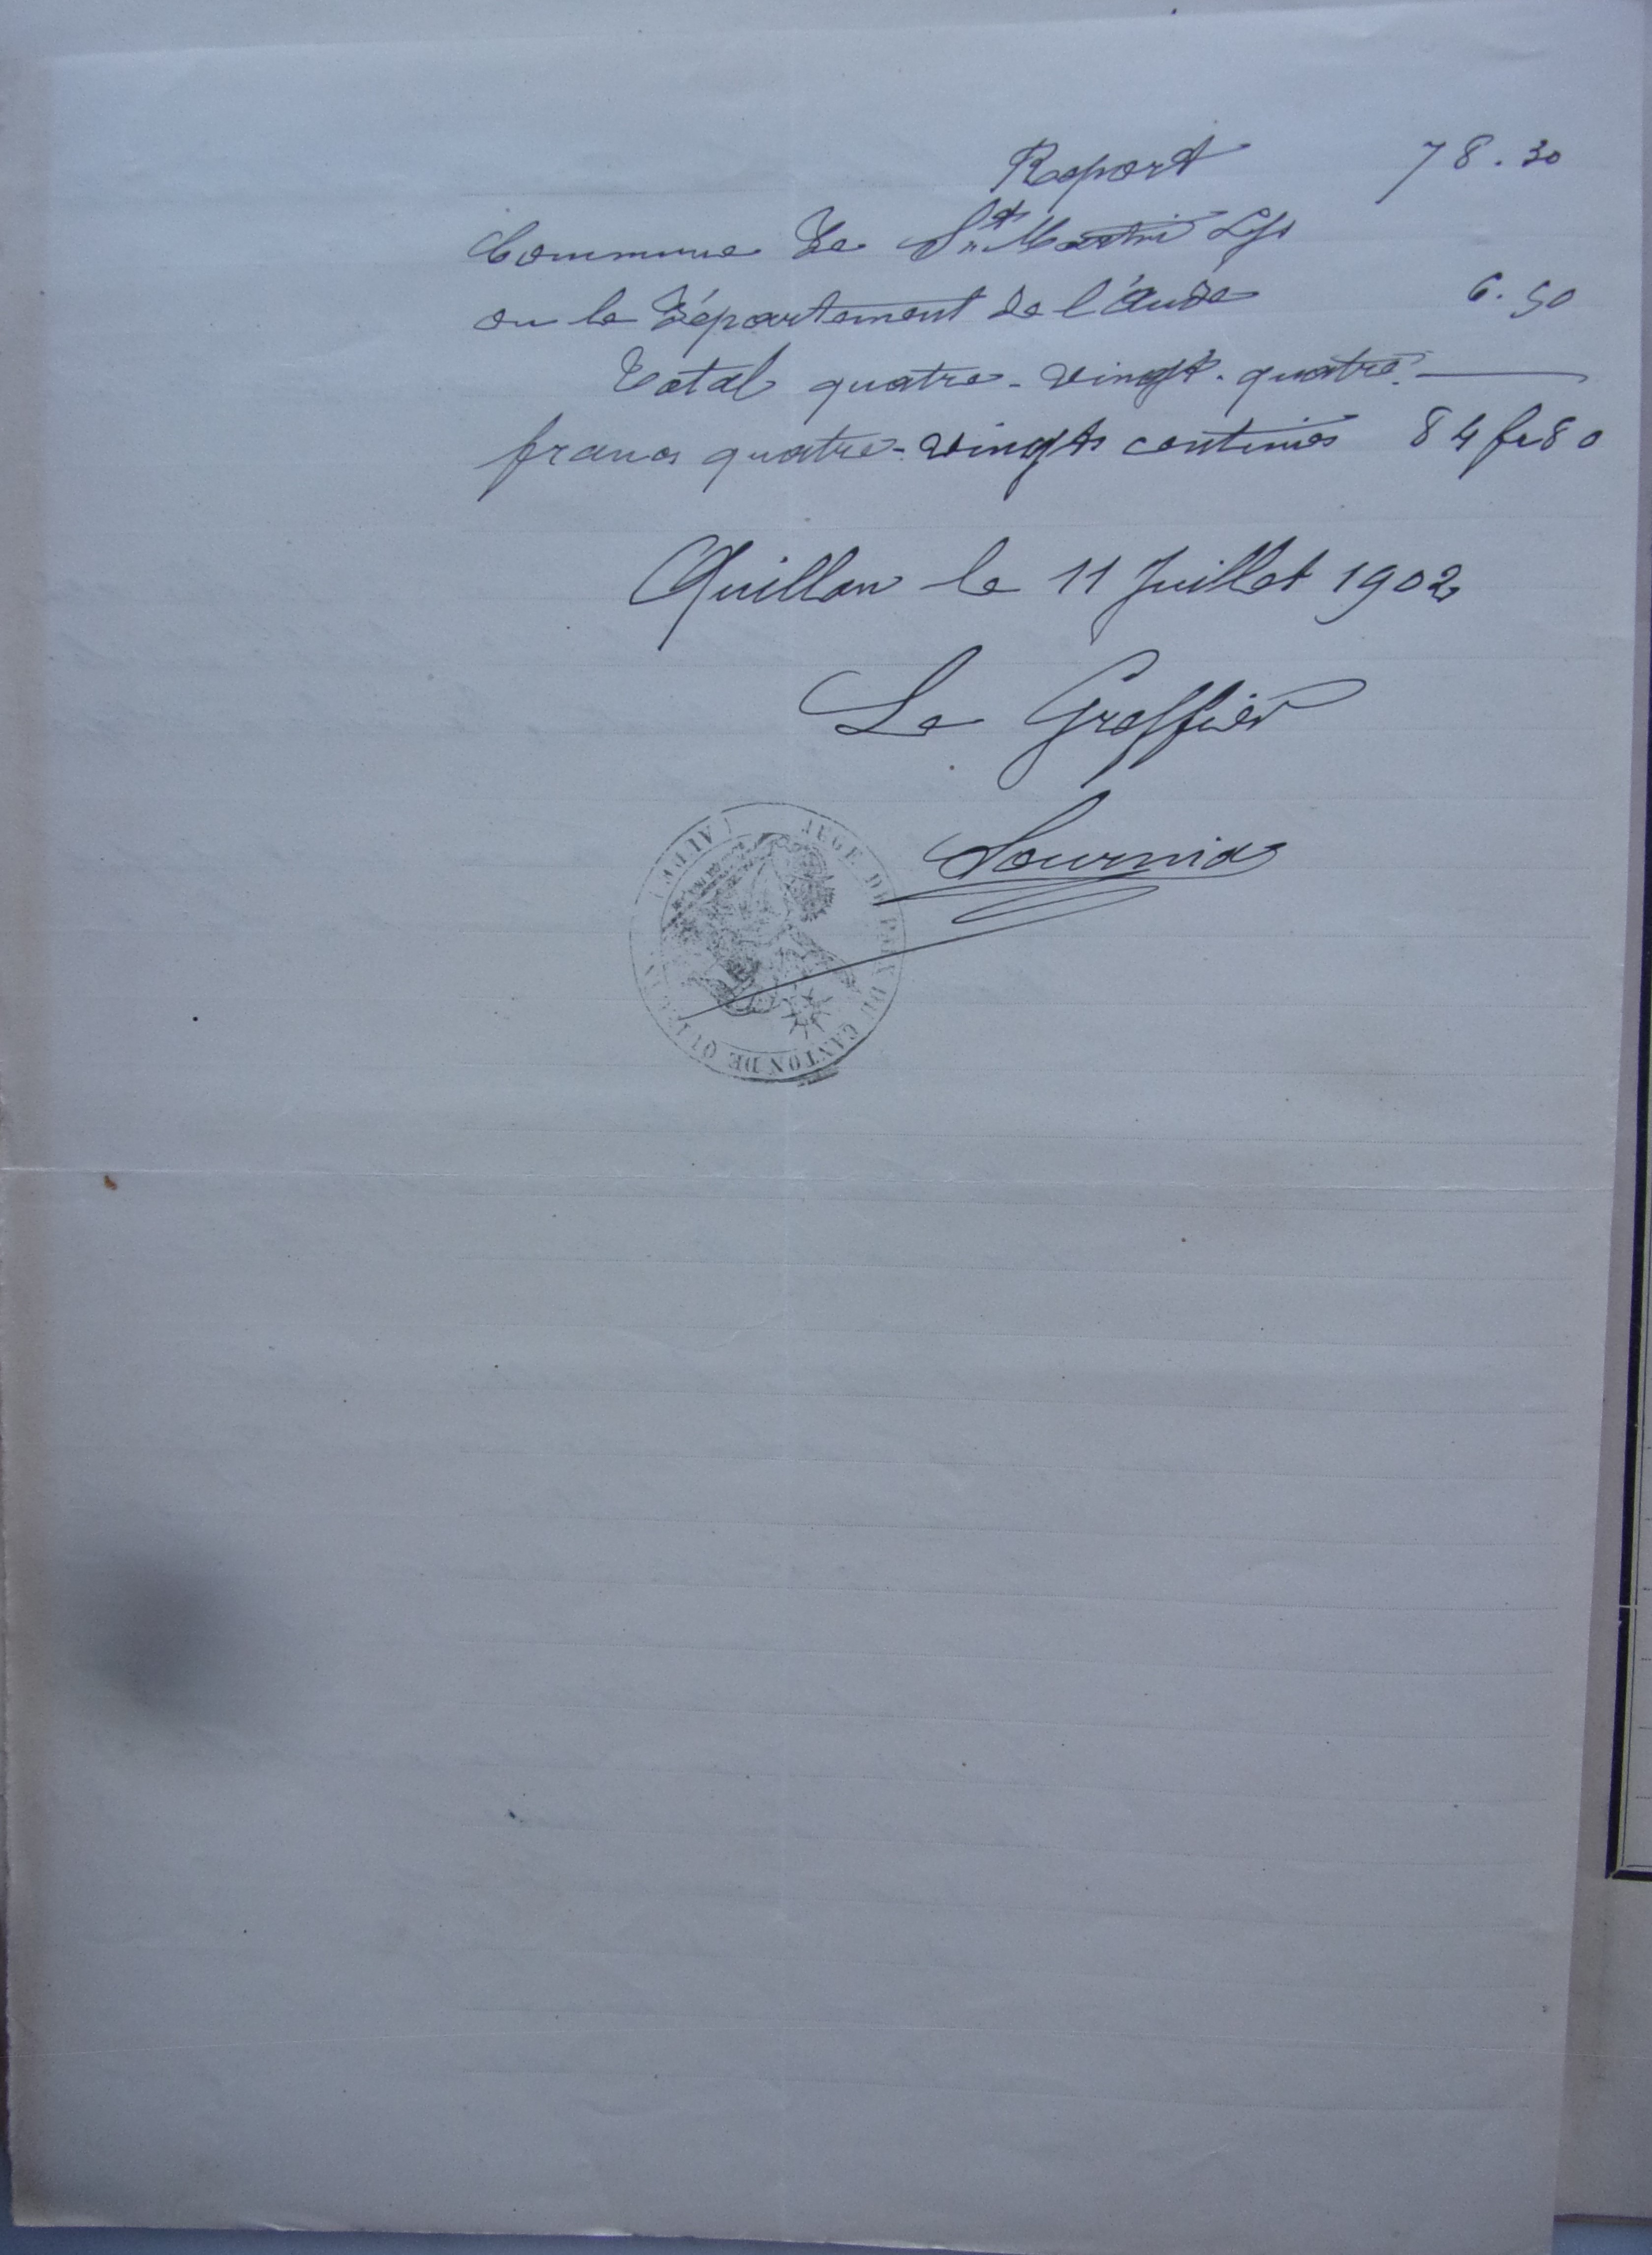 Report 78.30
Commune de St Martin Lys
ou le Département de l'Aude 6.50
Total quatre-vingt-quatre
francs quatre-vingts centimes 84 fr 80
Quillan le 11 Juillet 1902
Le Greffier
Sournia
JUGE DE PAIX DU CANTON DE QUILLAN (AUDE)